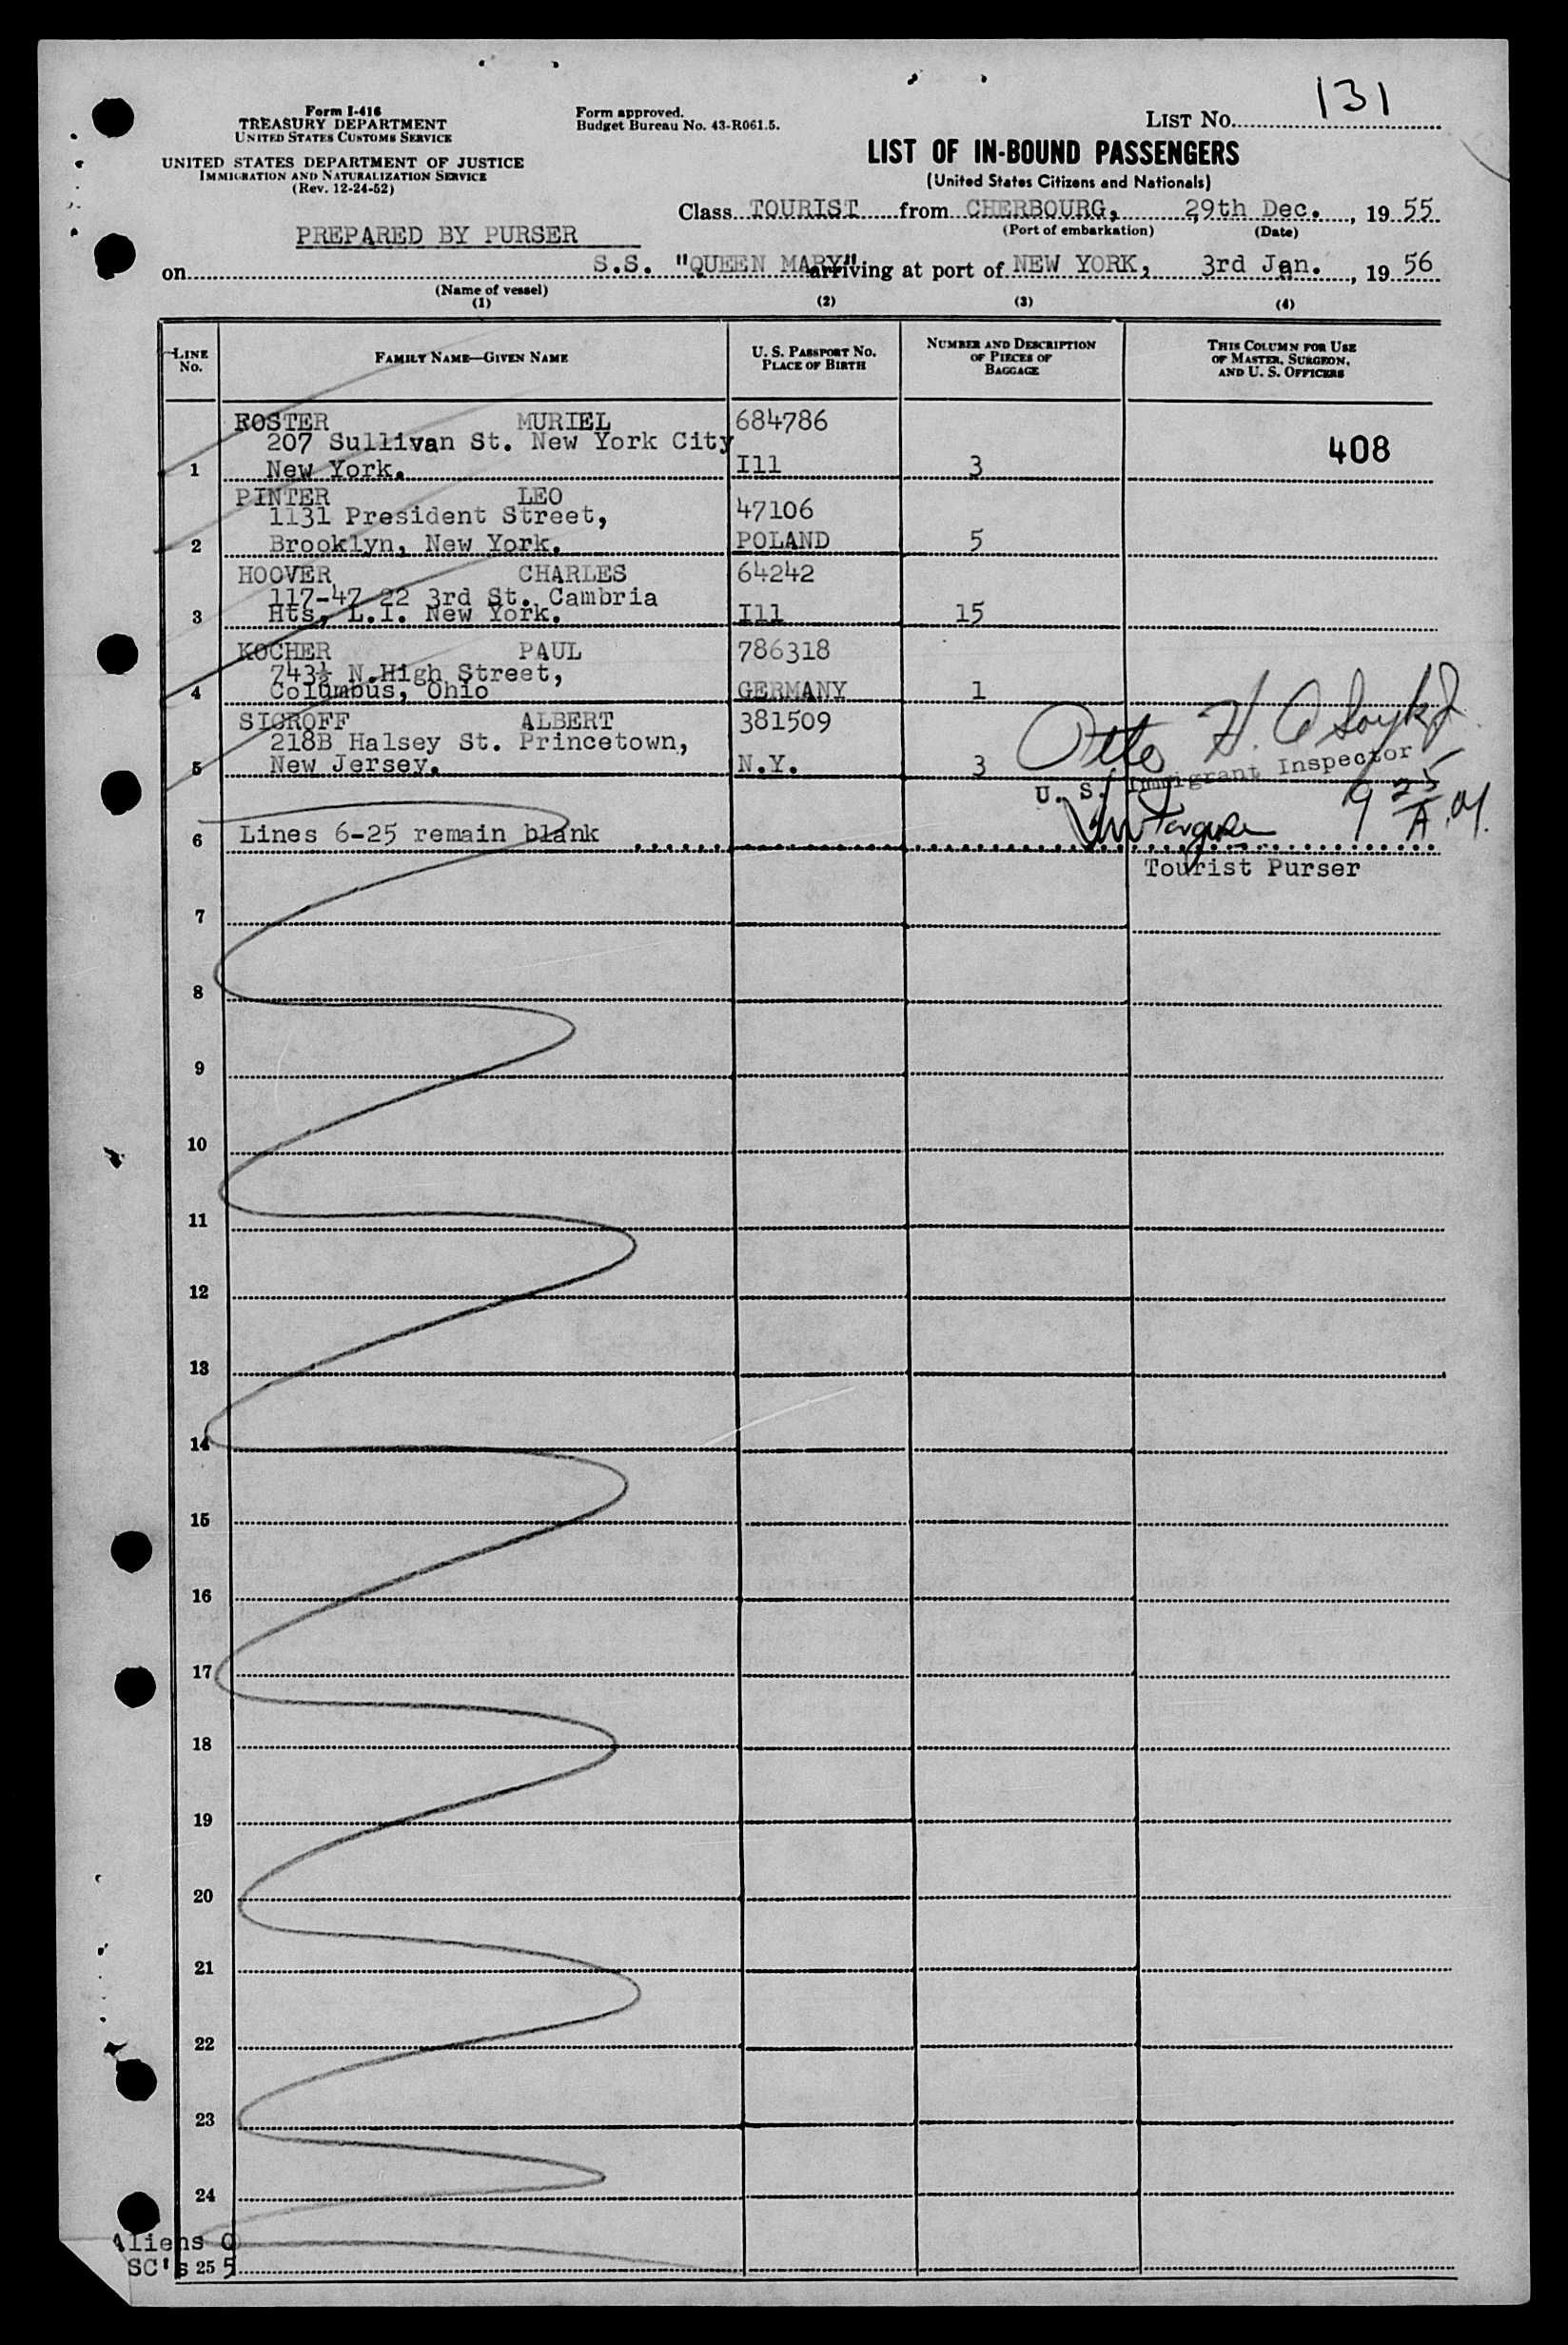 Form I-416
TREASURY DEPARTMENT
UNITED STATES CUSTOMS SERVICE
UNITED STATES DEPARTMENT OF JUSTICE
IMMIGRATION AND NATURALIZATION SERVICE
(Rev. 12-24-52)
Form approved.
Budget Bureau No. 43-R061.5.
LIST NO. 131
LIST OF IN-BOUND PASSENGERS
(United States Citizens and Nationals)
Class TOURIST from CHERBOURG, 29th Dec., 19 55
(Port of embarkation) (Date)
PREPARED BY PURSER
on S.S. "QUEEN MARY" arriving at port of NEW YORK, 3rd Jan., 19 56
(Name of vessel)
(1) (2) (3) (4)
LINE NO. FAMILY NAME—GIVEN NAME U. S. PASSPORT NO. PLACE OF BIRTH NUMBER AND DESCRIPTION OF PIECES OF BAGGAGE THIS COLUMN FOR USE OF MASTER, SURGEON, AND U. S. OFFICERS
FOSTER MURIEL 684786
207 Sullivan St. New York City 408
1 New York. Ill 3
PINTER LEO
1131 President Street, 47106
2 Brooklyn, New York. POLAND 5
HOOVER CHARLES 64242
117-47 22 3rd St. Cambria
3 Hts, L.I. New York. Ill 15
KOCHER PAUL 786318
743½ N.High Street,
4 Columbus, Ohio GERMANY 1
SICROFF ALBERT 381509
218B Halsey St. Princetown,
5 New Jersey. N.Y. 3
Otto H.
U. S. Immigrant Inspector
9 25 A.M.
6 Lines 6-25 remain blank
Tourist Purser
7
8
9
10
11
12
13
14
15
16
17
18
19
20
21
22
23
24
Aliens 0
SC's 25 5